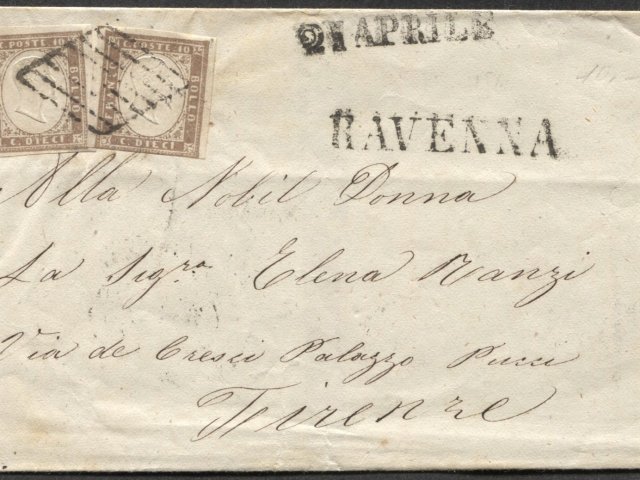 C. POSTE
C. DIECI
BOLLO
C. POSTE 10
BOLLO
C. DIECI
21 APRILE
RAVENNA
Alla Nobil Donna
La Sigra Elena Ranzi
Via de Cresci Palazzo Pucci
Firenze